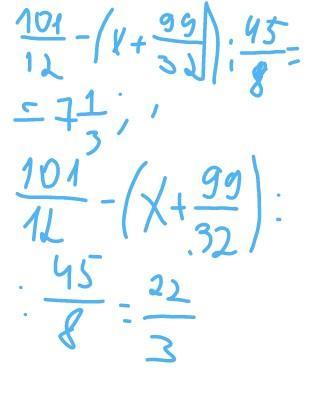 101/12 - (x + 99/32) : 45/8 =
= 7 1/3 ; ,
101/12 - (x + 99/32) :
: 45/8 = 22/3